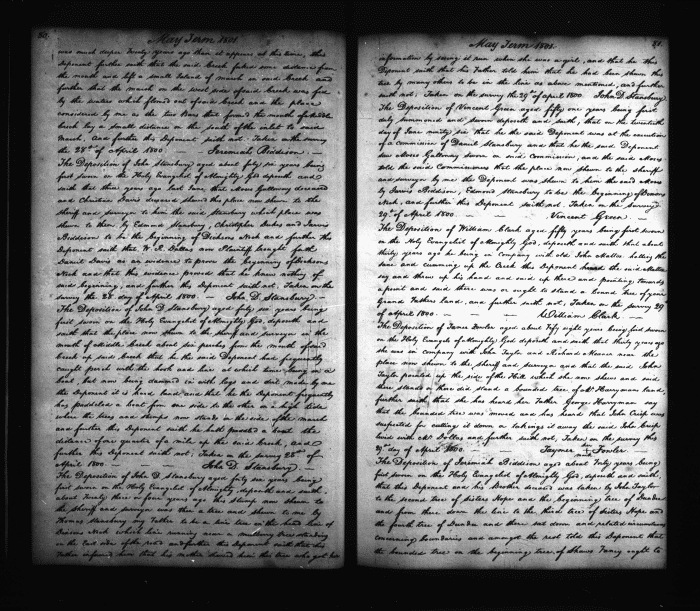 80.
May Term 1801.
was much deeper Twenty years ago than it appears at this time, this
deponent further saith that the said Creek forked some distance from
the mouth and left a small Island of marsh in said Creek and
further that the marsh on the west side of said Creek was fed
by the waters which flowed out of said Creek and the place
considered by me as the two Bows that formed the mouth of
Creek lay a small distance on the south of the inlet to said
March, and further this deponent saith not. Taken on the survey
the 28th of April 1800. Jeremiah Biddison
The Deposition of John Stansbury aged about fifty six years being
first sworn on the Holy Evangels of Almighty God deposeth and
saith that three years ago last June that Moses Galloway deceased
and Christian Davis deceased shewed this place now shewn to the
Sheriff and surveyor to him the said Stansbury which place was
shewn to them by Edmund Stansbury, Christopher Dukes and Jarvis
Biddison to be the beginning of Dickens Neck and further this
Deponent saith that W. R. Dallas now Plaintiff brought forth
Daniel Davis as an evidence to prove the beginning of Dicksons
Neck and that this evidence proved that he knew nothing of
said beginning, and further this deponent saith not. Taken on the
survey the 28 day of April 1800 - John D. Stansbury -
The Deposition of John D. Stansbury aged forty six years being
first sworn on the Holy Evangels of Almighty God, deposeth and
saith that the place now shewn to the Sheriff and surveyor in the
mouth of Middle Creek about six perches from the mouth of said
Creek up said Creek that he the said Deponent had frequently
caught perch with the hook and line at which time being in a
boat, but now being dammed in with logs and dirt made by me
the deponent it is hard land and that he the Deponent frequently
has paddled a boat from one side to the other in a high tide
where the trees and stumps now stand on the side of the marsh
and further this Deponent saith he hath paddled a boat the
distance of one quarter of a mile up the said Creek, and
further this Deponent saith not: Taken on the survey 28th of
April 1800. - John D. Stansbury. -
The Deposition of John D. Stansbury aged forty six years being
first sworn on the Holy Evangels of Almighty God deposeth and saith
about Twenty three or four years ago the stump now shewn to
the Sheriff and surveyor was then a tree and shewn to me by
Thomas Stansbury my Father to be a line tree in the head line of
Dicksons Neck which line running near a mulberry tree standing
on the East side of the road and further this Deponent saith that his
Father informed him that his mother shewed him this tree who got her
81.
May Term 1801.
information by seeing it run when she was a girl, and that he this
Deponent saith that his Father told him that he had been shewn this
tree by many others to be in the line as above mentioned, and further
saith not; Taken on the survey the 29th of April 1800. John D. Stansbury
The Deposition of Vincent Green aged fifty one years being first
duly summoned and sworn deposeth and saith, that on the twentieth
day of June ninety six that he the said Deponent was at the execution
of a commission of Daniel Stansbury and that he the said Deponent
saw Moses Galloway sworn on said Commission, and the said Moses
told the said Commissioners that the place now shewn to the sheriff
and surveyor by me the Deponent was shewn to him the said Moses
by Jarvis Biddison, Edmond Stansbury to be the beginning of Dicksons
Neck, and further this Deponent saith not. Taken on the survey
29th of April 1800 - Vincent Green. -
The Deposition of William Clark aged fifty years being first sworn
on the Holy Evangels of Almighty God, deposeth and saith that about
thirty years ago he being in company with old John Mattee halling the
sane and coming up the Creek this Deponent heard the said Mattee
say and threw up his hand and said up there and pointing towards
a point and said there was or ought to stand a bound tree of your
Grand Fathers land, and further saith not, Taken on the survey 29
of April 1800. - William Clark. -
The Deposition of Jane Fowler aged about fifty eight years being first sworn
on the Holy Evangels of Almighty God deposeth and saith that thirty years ago
she was in company with John Taylor and Richard near the
place now shewn to the Sheriff and surveyor and that the said John
Taylor pointed up the side of the Hill which she now shews and said
there stands or there did stand a bounded tree, of Mr Harryman land,
further saith, that she has heard her Father George Harryman say
that the bounded tree was moved and has heard that John Crisp was
suspected for cutting it down or takeing it away the said John Crisp
lived with Mr Dallas and further saith not, Taken on the survey this
29th day of April 1800. - Jaymes + Fowler -
The Deposition of Jeremiah Biddison aged about Forty years being
first sworn on the Holy Evangels of Almighty God, deposeth and saith,
that this deponent and his Brother Daniel was taken by John Taylor
to the second tree of Sisters Hope and the beginning tree of Dunder
and from there down the line to the third tree of Sisters Hope and
the fourth tree of Dunder and there sat down and related circumstances
concerning boundaries and amongst the rest told this Deponent that
the bounded tree on the beginning tree of Shaws Fancy ought to